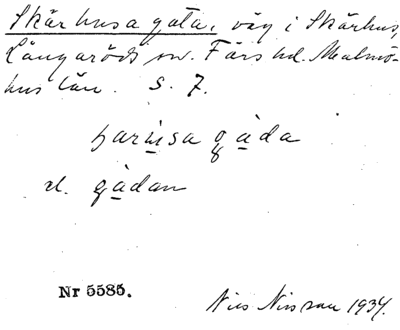 Skärhusa gata, väg i Skärhus,
Långaröds sn. Färs hd. Malmö-
hus län. S. 7.
gada
el. gadan
Nr 5585.
Nils Nilsson 1934.